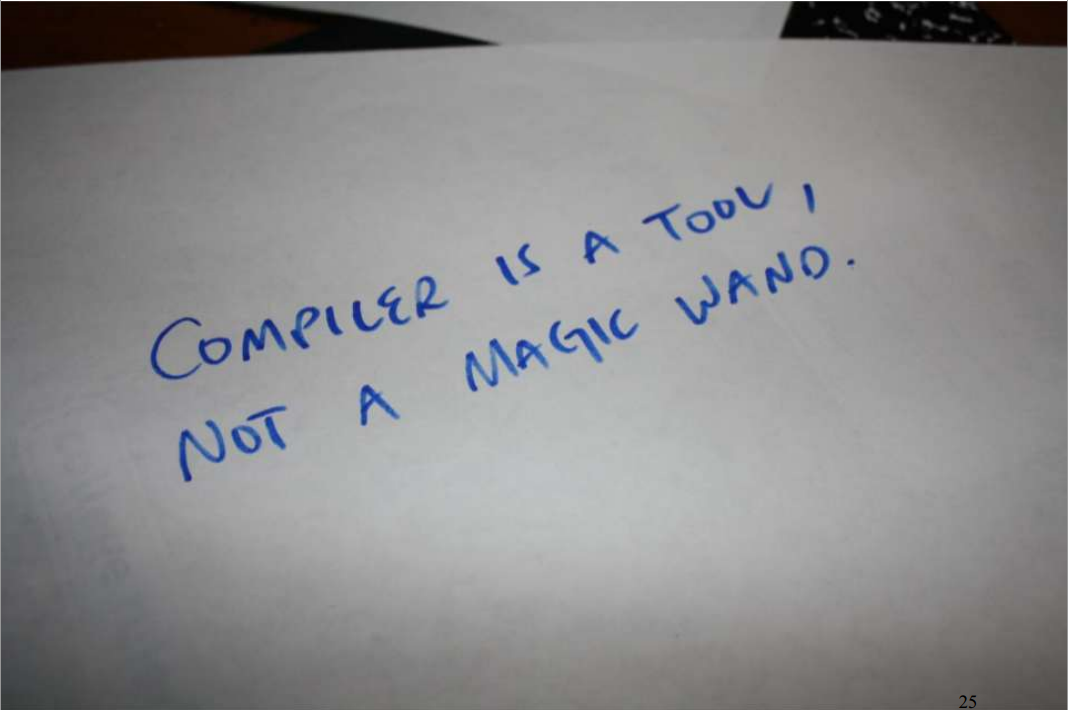 COMPILER IS A TOOL,
NOT A MAGIC WAND.
25